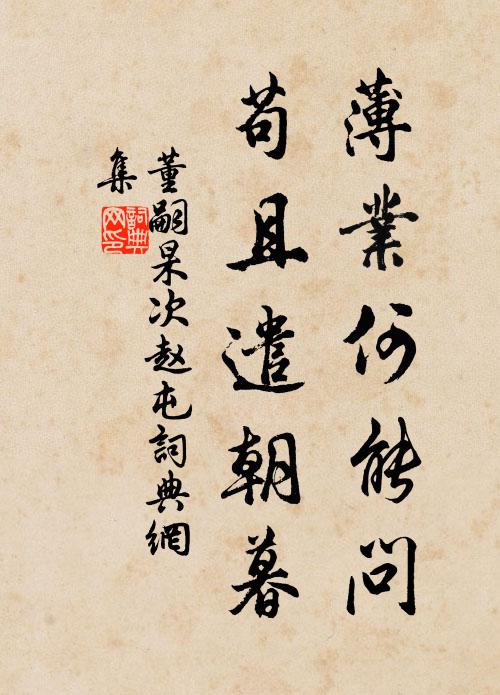 薄業何能問
苟且遣朝暮
董嗣杲次赵屯詞典網
集
詞典
网印